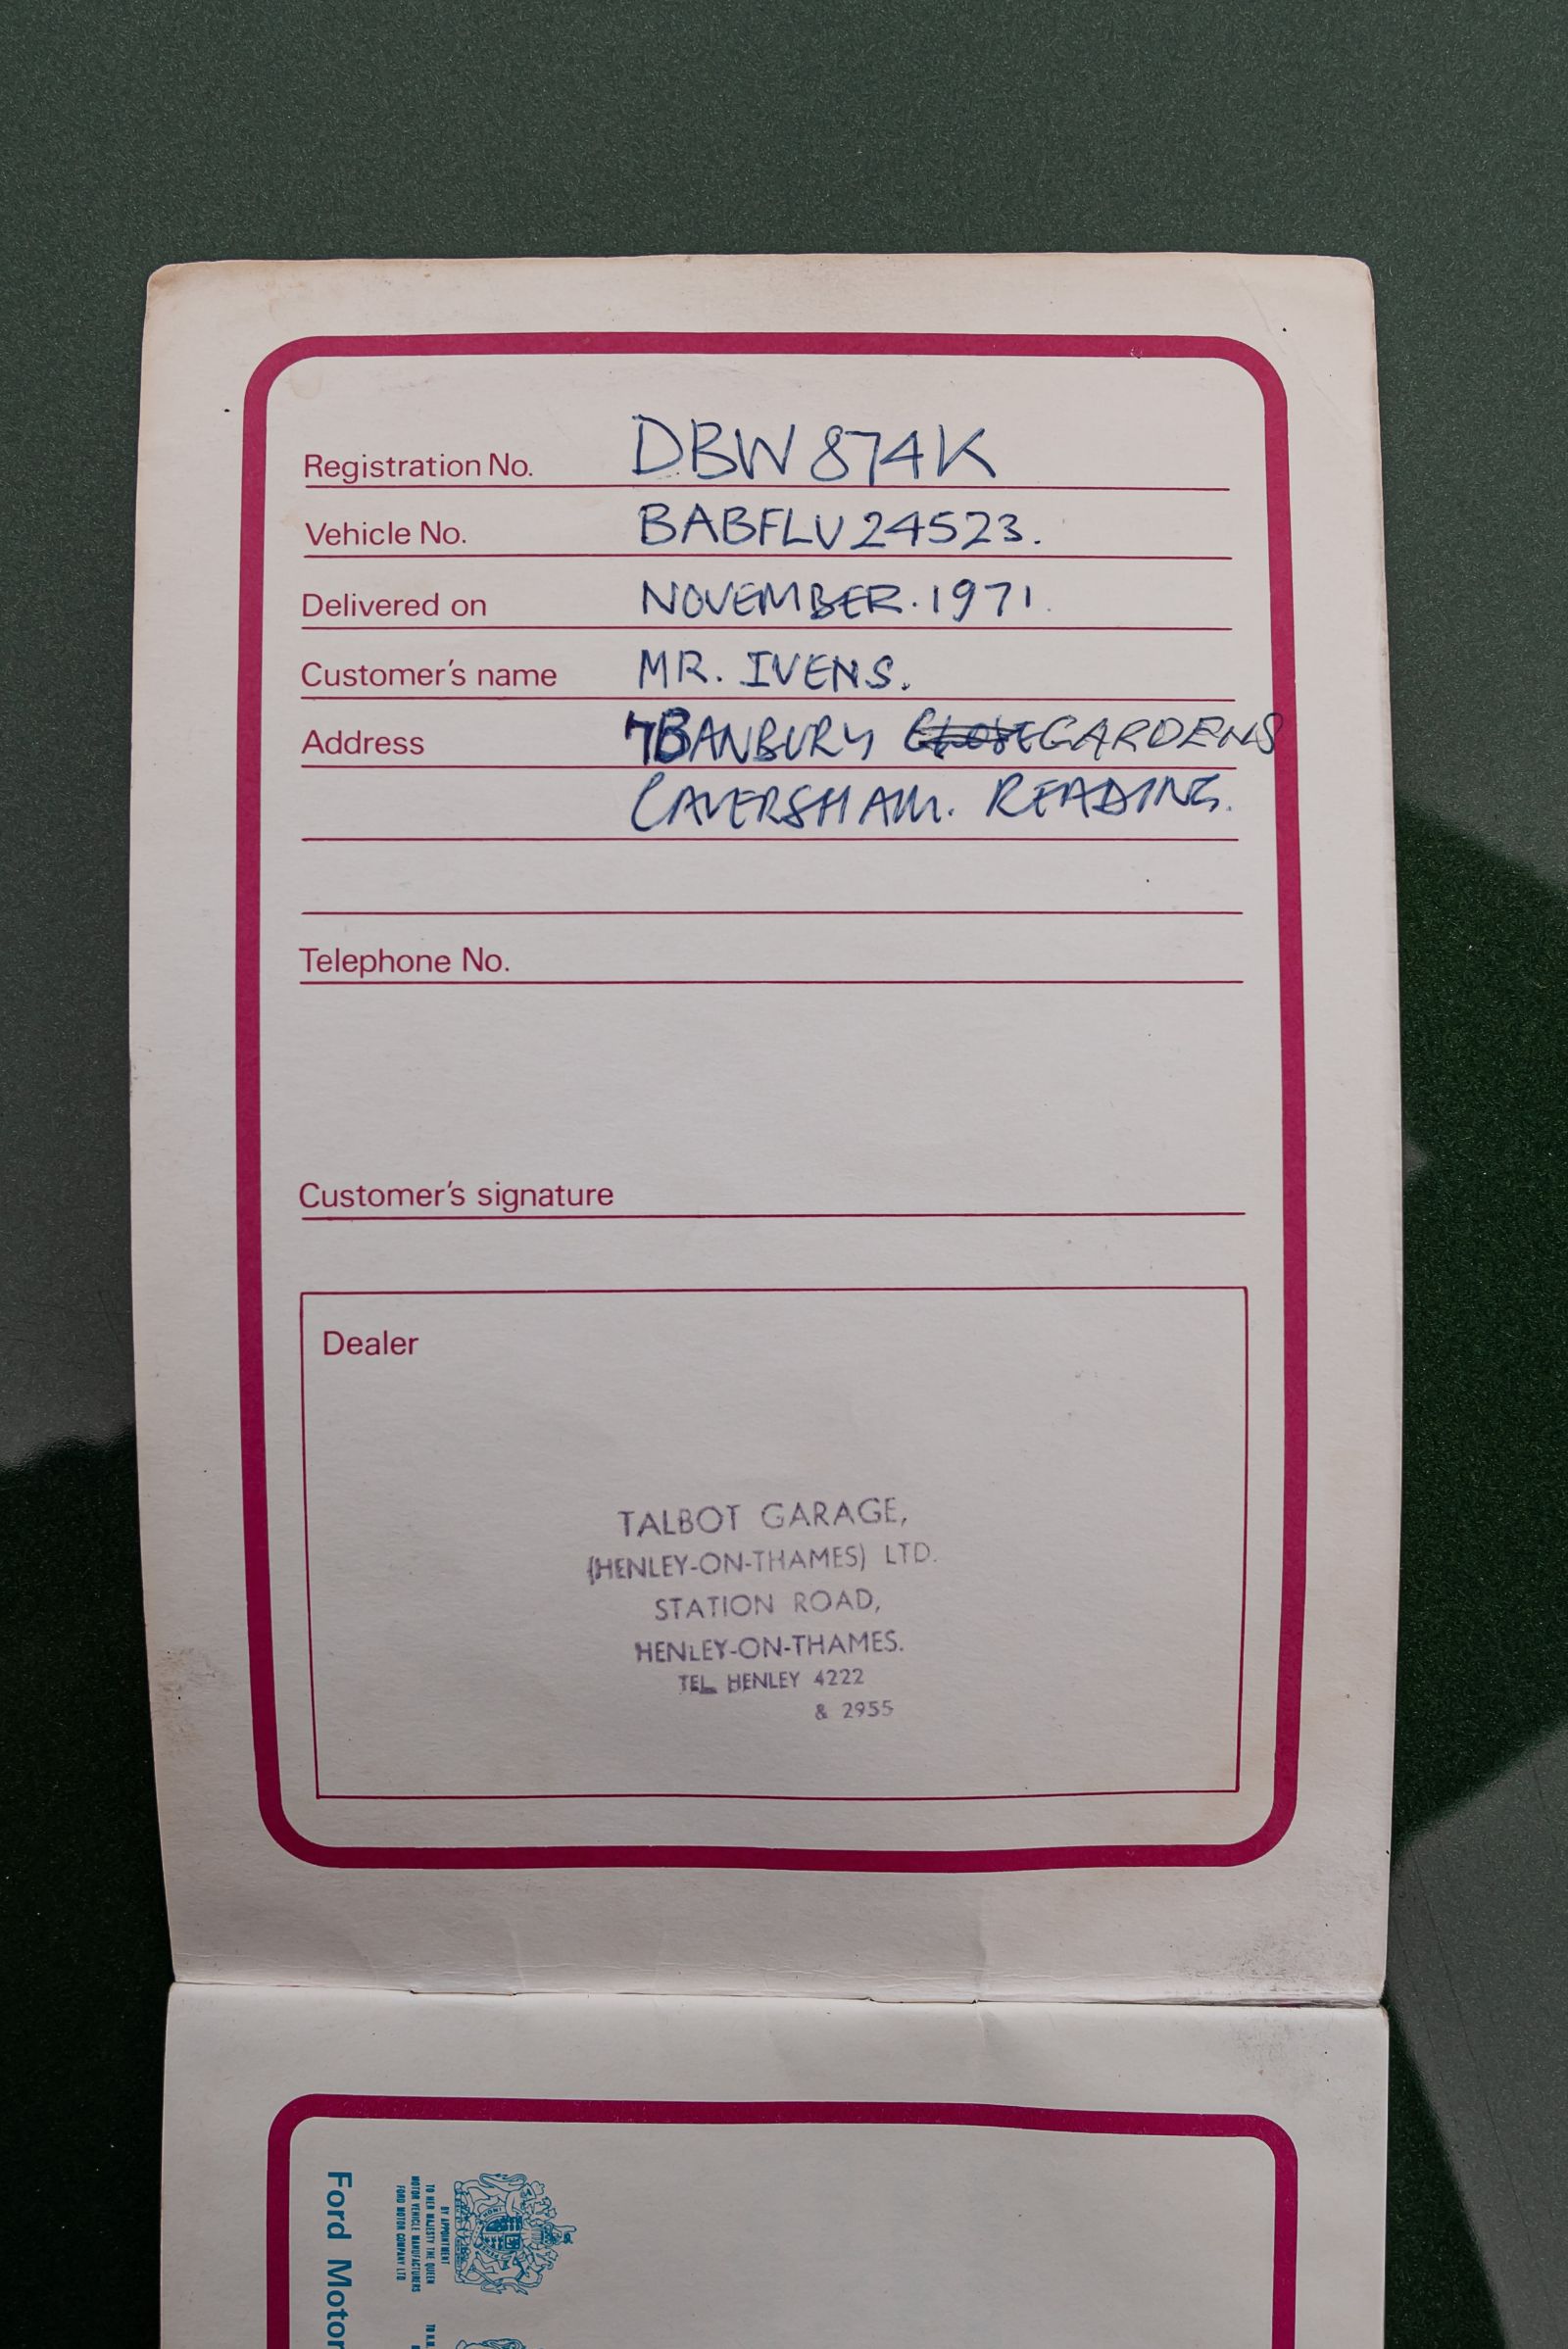 Registration No. DBW 874K
Vehicle No. BABFLU24523.
Delivered on NOVEMBER. 1971.
Customer's name MR. IVENS.
Address 7 BANBURY CLOSE GARDENS
CAVERSHAM. READING.
Telephone No.
Customer's signature
Dealer
TALBOT GARAGE,
(HENLEY-ON-THAMES) LTD.
STATION ROAD,
HENLEY-ON-THAMES.
TEL. HENLEY 4222
& 2955
BY APPOINTMENT
TO HER MAJESTY THE QUEEN
MOTOR VEHICLE MANUFACTURERS
FORD MOTOR COMPANY LTD
Ford Motor